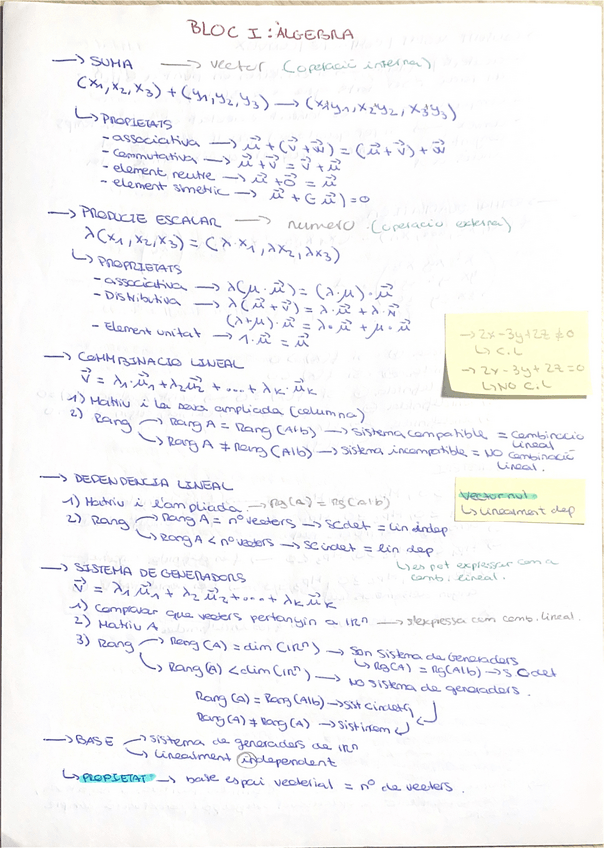 BLOC I: ÀLGEBRA
→ SUMA → vector (operació interna)
(x1, x2, x3) + (y1, y2, y3) → (x1y1, x2y2, x3y3)
↳ PROPIETATS
- associativa → u⃗ + (v⃗ + w⃗) = (u⃗ + v⃗) + w⃗
- Commutativa → u⃗ + v⃗ = v⃗ + u⃗
- element neutre → u⃗ + 0⃗ = u⃗
- element simetric → u⃗ + (-u⃗) = 0
→ PRODUCTE ESCALAR → numero (operacio externa)
λ(x1, x2, x3) = (λ·x1, λx2, λx3)
↳ PROPRIETATS
- associativa → λ(μ·u⃗) = (λ·μ)·u⃗
- Distributiva → λ(u⃗ + v⃗) = λ·u⃗ + λ·v⃗
(λ+μ)·u⃗ = λ·u⃗ + μ·u⃗
- Element unitat → 1·u⃗ = u⃗
→ 2x - 3y + 2z ≠ 0
↳ C.L
→ 2x - 3y + 2z = 0
↳ NO C.L
→ COMMBINACIO LINEAL
v⃗ = λ1·u⃗1 + λ2u⃗2 + .... + λk·u⃗k
1) Matriu i la seva ampliada (columna)
2) Rang → Rang A = Rang (A|b) → Sistema compatible = Combinacio lineal
↳ Rang A ≠ Rang (A|b) → Sistema incompatible = NO Combinació lineal.
→ DEPENDENCIA LINEAL
1) Matriu i l'ampliada → Rg(A) = Rg(A|b)
2) Rang → Rang A = nº vectors → SCdet = lin indep
↳ Rang A < nº vectors → SCindet = lin dep
↳ es pot expressar com a comb. lineal.
Vector nul
↳ Linealment dep
→ SISTEMA DE GENERADORS
v⃗ = λ1 u⃗1 + λ2 u⃗2 + .... + λk u⃗k
1) Comprovar que vectors pertanyin a ℝⁿ → s'expressa com comb. lineal.
2) Matriu A
3) Rang → Rang (A) = dim (ℝⁿ) → Son Sistema de Generadors
↳ Rg(A) = Rg(A|b) → S C det
↳ Rang (A) < dim (ℝⁿ) → No sistema de generadors.
Rang (A) = Rang (A|b) → Sist Cindet
Rang (A) ≠ Rang (A) → Sist incom
→ BASE → sistema de generadors de ℝⁿ
↳ Linealment independent
↳ PROPIETAT → base espai vectorial = nº de vectors.